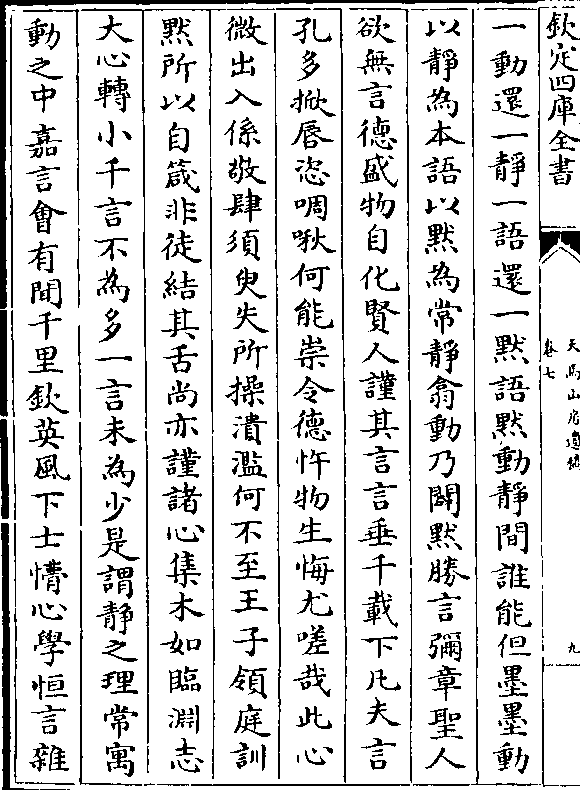 欽定四庫全書
天馬山房遺稿
卷七
九
一動還一靜一語還一默語默動靜間誰能但墨墨動
以靜為本語以默為常靜翕動乃闢默勝言彌章聖人
欲無言德盛物自化賢人謹其言言垂千載下凡夫言
孔多掀唇恣啁啾何能崇令德忤物生悔尤嗟哉此心
微出入係敬肆須臾失所操潰濫何不至王子領庭訓
默所以自箴非徒結其舌尚亦謹諸心集木如臨淵志
大心轉小千言不為多一言未為少是謂靜之理常寓
動之中嘉言會有聞千里欽英風下士懵心學恒言雜